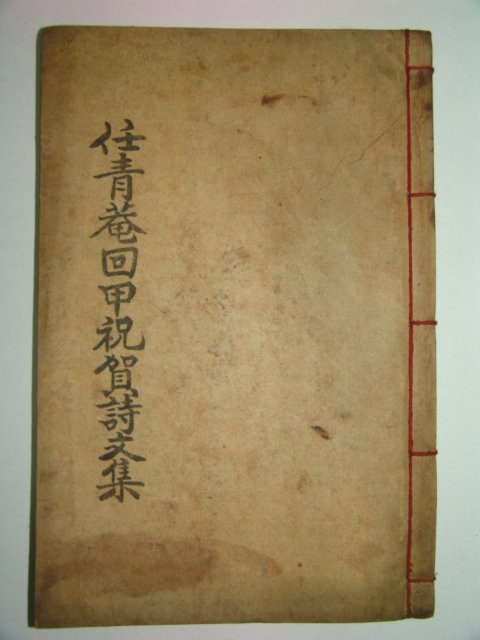 任青菴回甲祝賀詩文集